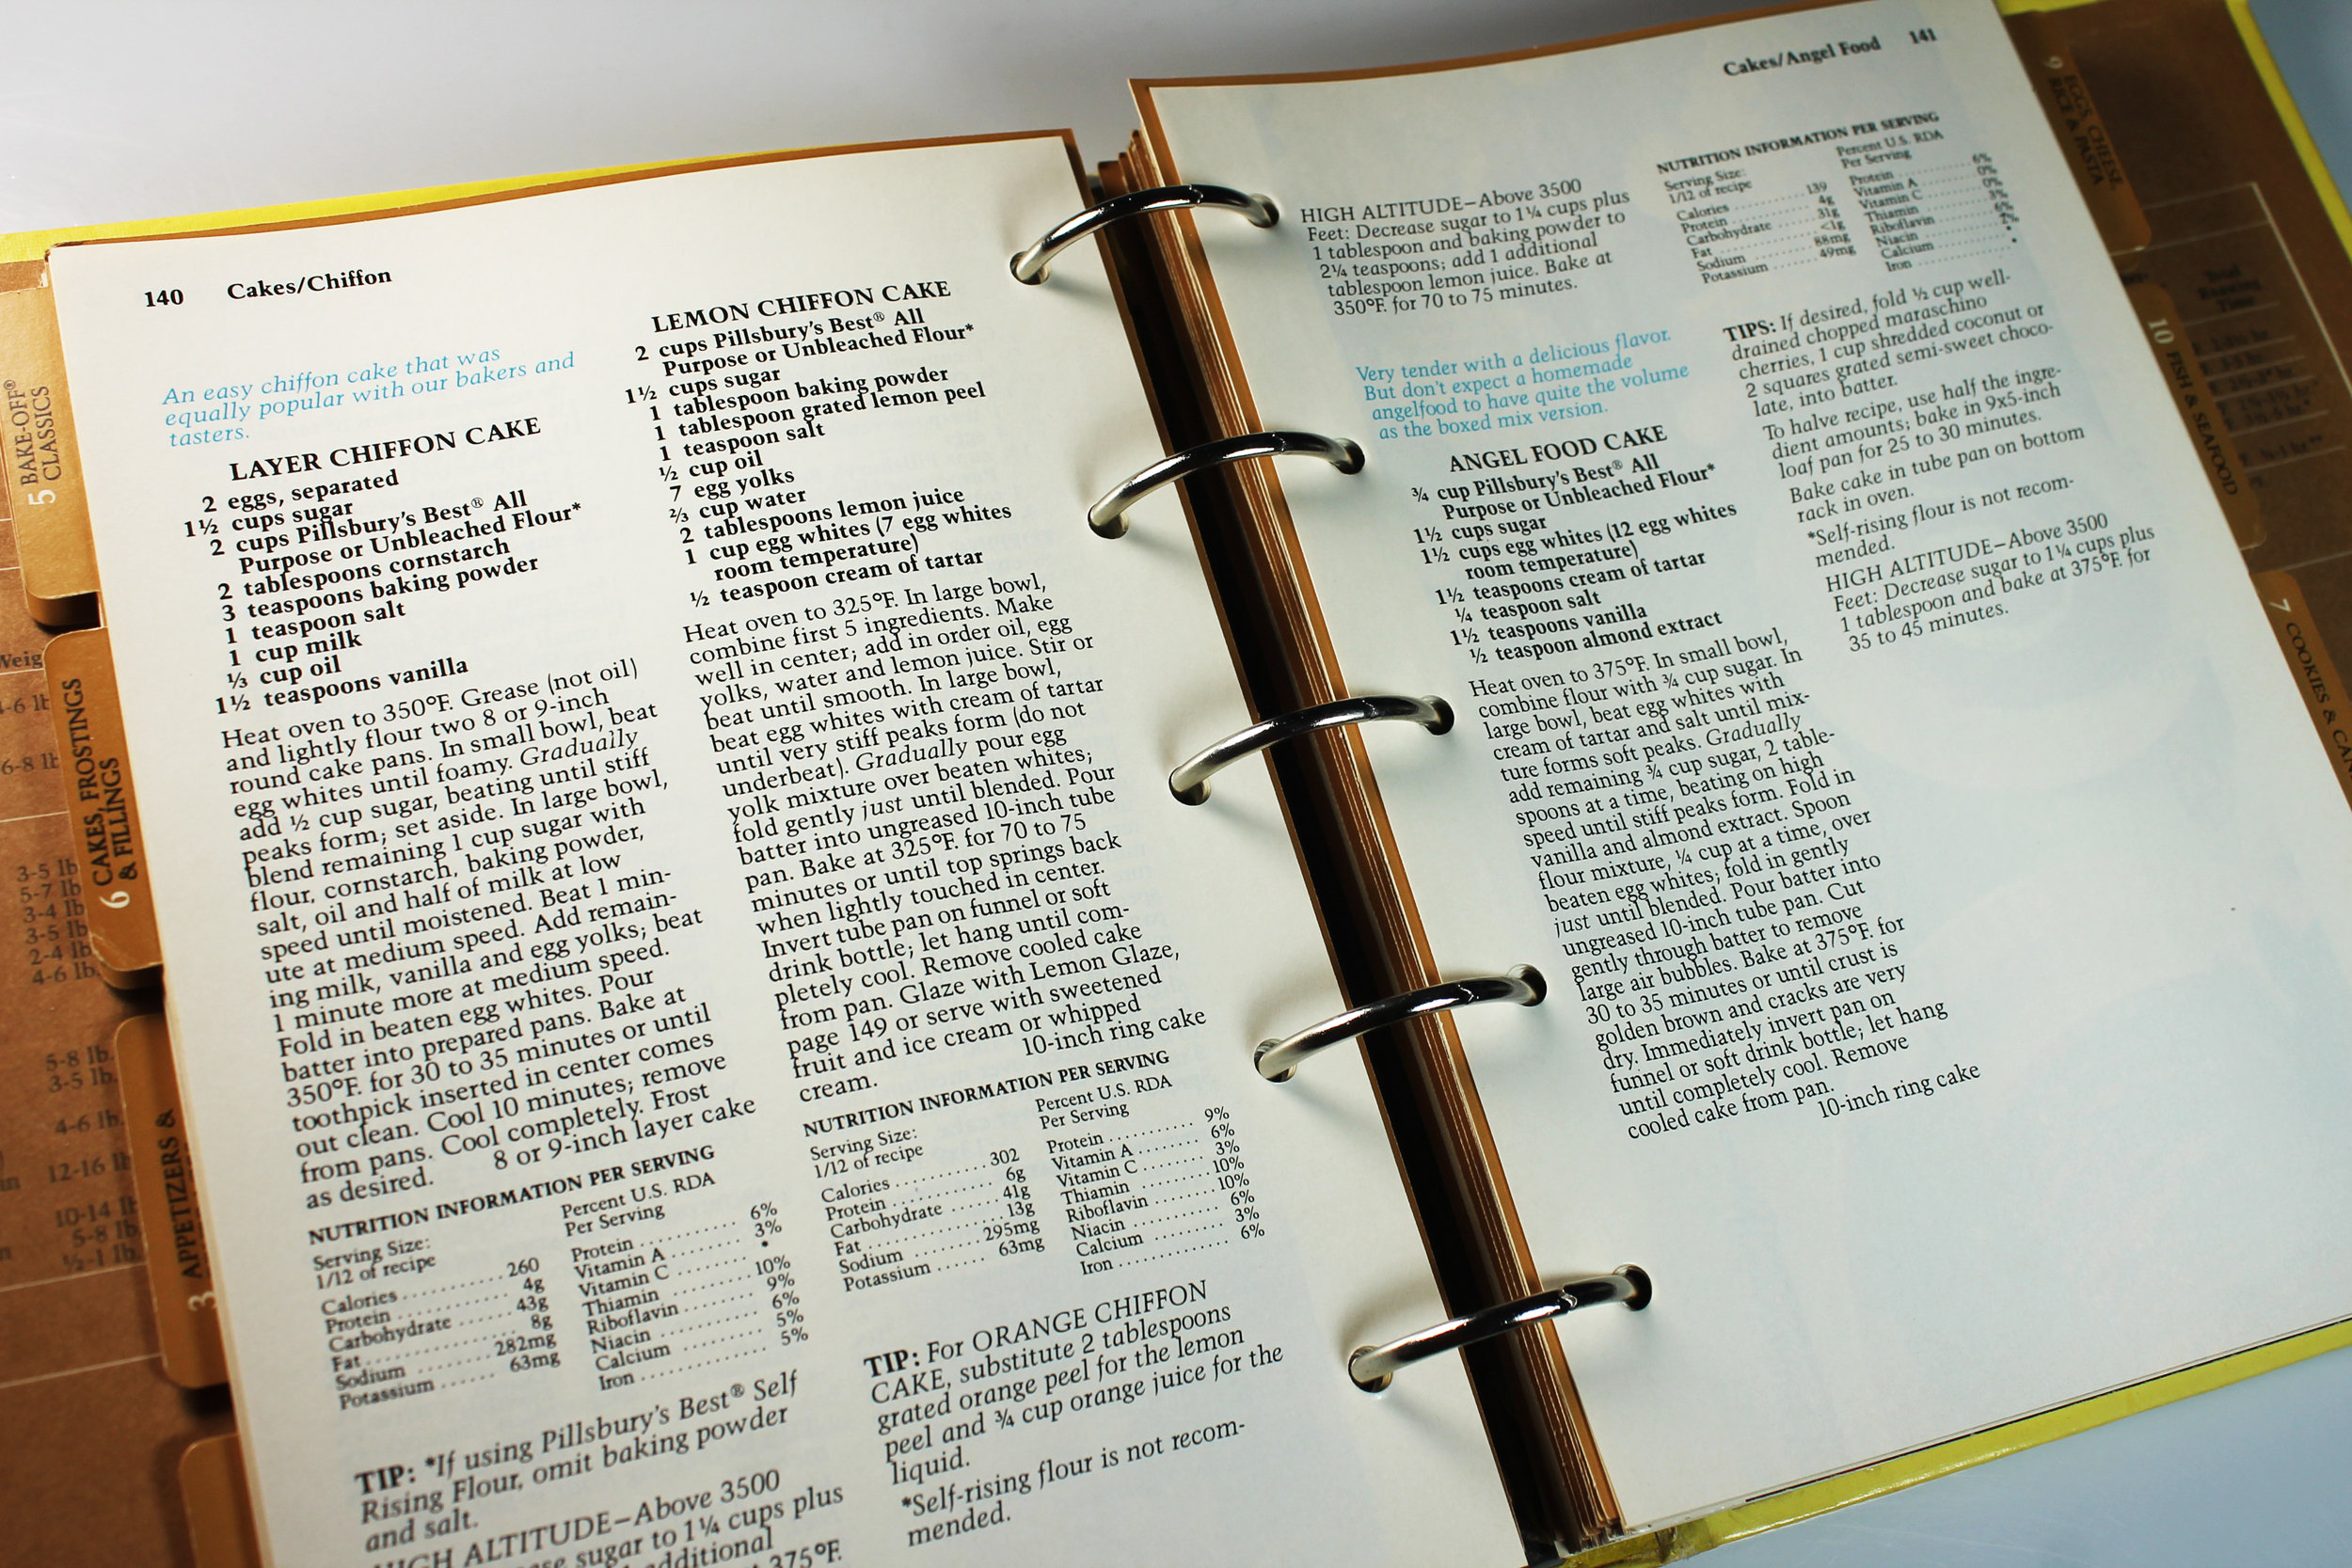 140 Cakes/Chiffon
An easy chiffon cake that was
equally popular with our bakers and
tasters.
LAYER CHIFFON CAKE
2 eggs, separated
1½ cups sugar
2 cups Pillsbury's Best® All
Purpose or Unbleached Flour*
2 tablespoons cornstarch
3 teaspoons baking powder
1 teaspoon salt
1 cup milk
⅓ cup oil
1½ teaspoons vanilla
Heat oven to 350°F. Grease (not oil)
and lightly flour two 8 or 9-inch
round cake pans. In small bowl, beat
egg whites until foamy. Gradually
add ½ cup sugar, beating until stiff
peaks form; set aside. In large bowl,
blend remaining 1 cup sugar with
flour, cornstarch, baking powder,
salt, oil and half of milk at low
speed until moistened. Beat 1 min-
ute at medium speed. Add remain-
ing milk, vanilla and egg yolks; beat
1 minute more at medium speed.
Fold in beaten egg whites. Pour
batter into prepared pans. Bake at
350°F. for 30 to 35 minutes or until
toothpick inserted in center comes
out clean. Cool 10 minutes; remove
from pans. Cool completely. Frost
as desired. 8 or 9-inch layer cake
NUTRITION INFORMATION PER SERVING
Serving Size:
1/12 of recipe
Calories 260
Protein 4g
Carbohydrate 43g
Fat 8g
Sodium 282mg
Potassium 63mg
Percent U.S. RDA
Per Serving
Protein 6%
Vitamin A 3%
Vitamin C •
Thiamin 10%
Riboflavin 9%
Niacin 6%
Calcium 5%
Iron 5%
TIP: *If using Pillsbury's Best® Self
Rising Flour, omit baking powder
and salt.
HIGH ALTITUDE—Above 3500
sugar to 1¼ cups plus
additional
375°F.
LEMON CHIFFON CAKE
2 cups Pillsbury's Best® All
Purpose or Unbleached Flour*
1½ cups sugar
1 tablespoon baking powder
1 tablespoon grated lemon peel
1 teaspoon salt
½ cup oil
7 egg yolks
⅔ cup water
2 tablespoons lemon juice
1 cup egg whites (7 egg whites
room temperature)
½ teaspoon cream of tartar
Heat oven to 325°F. In large bowl,
combine first 5 ingredients. Make
well in center; add in order oil, egg
yolks, water and lemon juice. Stir or
beat until smooth. In large bowl,
beat egg whites with cream of tartar
until very stiff peaks form (do not
underbeat). Gradually pour egg
yolk mixture over beaten whites;
fold gently just until blended. Pour
batter into ungreased 10-inch tube
pan. Bake at 325°F. for 70 to 75
minutes or until top springs back
when lightly touched in center.
Invert tube pan on funnel or soft
drink bottle; let hang until com-
pletely cool. Remove cooled cake
from pan. Glaze with Lemon Glaze,
page 149 or serve with sweetened
fruit and ice cream or whipped
cream. 10-inch ring cake
NUTRITION INFORMATION PER SERVING
Serving Size:
1/12 of recipe
Calories 302
Protein 6g
Carbohydrate 41g
Fat 13g
Sodium 295mg
Potassium 63mg
Percent U.S. RDA
Per Serving
Protein 9%
Vitamin A 6%
Vitamin C 3%
Thiamin 10%
Riboflavin 10%
Niacin 6%
Calcium 3%
Iron 6%
TIP: For ORANGE CHIFFON
CAKE, substitute 2 tablespoons
grated orange peel for the lemon
peel and ¾ cup orange juice for the
liquid.
*Self-rising flour is not recom-
mended.
Cakes/Angel Food 141
HIGH ALTITUDE—Above 3500
Feet: Decrease sugar to 1¼ cups plus
1 tablespoon and baking powder to
2¼ teaspoons; add 1 additional
tablespoon lemon juice. Bake at
350°F. for 70 to 75 minutes.
Very tender with a delicious flavor.
But don't expect a homemade
angelfood to have quite the volume
as the boxed mix version.
ANGEL FOOD CAKE
¾ cup Pillsbury's Best® All
Purpose or Unbleached Flour*
1½ cups sugar
1½ cups egg whites (12 egg whites
room temperature)
1½ teaspoons cream of tartar
¼ teaspoon salt
1½ teaspoons vanilla
½ teaspoon almond extract
Heat oven to 375°F. In small bowl,
combine flour with ¾ cup sugar. In
large bowl, beat egg whites with
cream of tartar and salt until mix-
ture forms soft peaks. Gradually
add remaining ¾ cup sugar, 2 table-
spoons at a time, beating on high
speed until stiff peaks form. Fold in
vanilla and almond extract. Spoon
flour mixture, ¼ cup at a time, over
beaten egg whites; fold in gently
just until blended. Pour batter into
ungreased 10-inch tube pan. Cut
gently through batter to remove
large air bubbles. Bake at 375°F. for
30 to 35 minutes or until crust is
golden brown and cracks are very
dry. Immediately invert pan on
funnel or soft drink bottle; let hang
until completely cool. Remove
cooled cake from pan.
10-inch ring cake
NUTRITION INFORMATION PER SERVING
Serving Size:
1/12 of recipe
Calories 139
Protein 4g
Carbohydrate 31g
Fat <1g
Sodium 88mg
Potassium 49mg
Percent U.S. RDA
Per Serving
Protein 6%
Vitamin A 0%
Vitamin C 0%
Thiamin 3%
Riboflavin 6%
Niacin 2%
Calcium •
Iron •
TIPS: If desired, fold ½ cup well-
drained chopped maraschino
cherries, 1 cup shredded coconut or
2 squares grated semi-sweet choco-
late, into batter.
To halve recipe, use half the ingre-
dient amounts; bake in 9x5-inch
loaf pan for 25 to 30 minutes.
Bake cake in tube pan on bottom
rack in oven.
*Self-rising flour is not recom-
mended.
HIGH ALTITUDE—Above 3500
Feet: Decrease sugar to 1¼ cups plus
1 tablespoon and bake at 375°F. for
35 to 45 minutes.
5 BAKE-OFF® CLASSICS
6 CAKES, FROSTINGS & FILLINGS
3 APPETIZERS &
9 EGGS, CHEESE, RICE & PASTA
10 FISH & SEAFOOD
7 COOKIES &
6-8 lb
3-5 lb
5-7 lb
3-4 lb
3-5 lb
2-4 lb
4-6 lb.
5-8 lb.
3-5 lb.
4-6 lb.
12-16 lb
10-14 lb
5-8 lb.
½-1 lb.